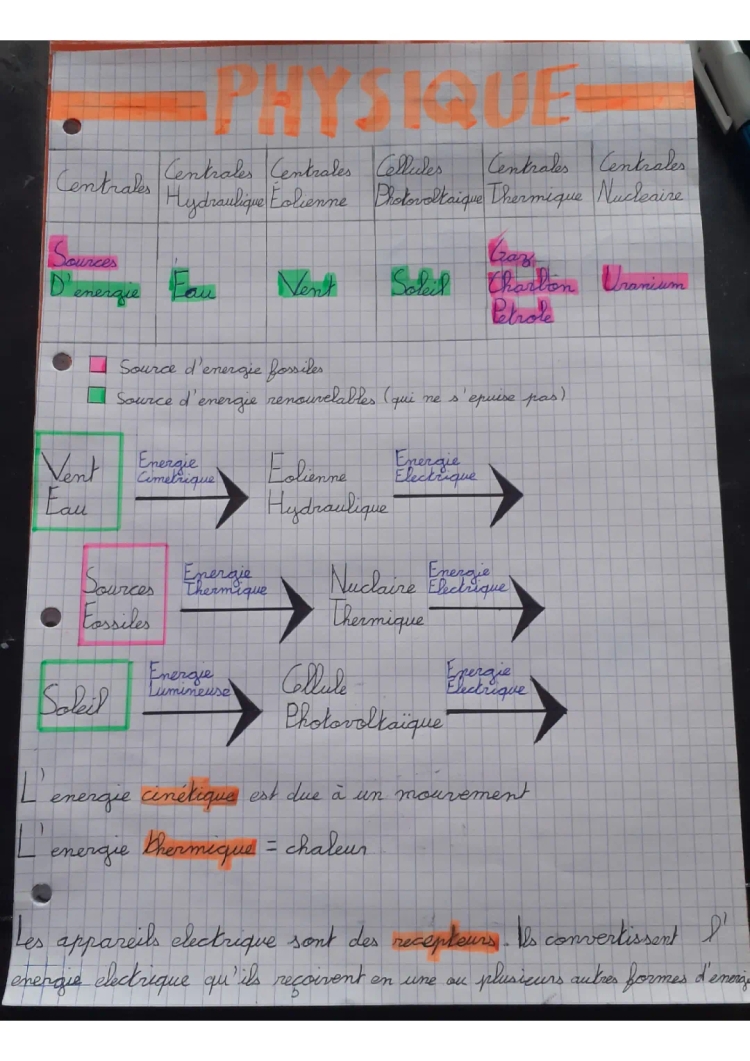 PHYSIQUE
Centrales
Centrales Hydraulique
Centrales Éolienne
Cellules Photovoltaique
Centrales Thermique
Centrales Nucleaire
Sources D'energie
Eau
Vent
Soleil
Gaz
Charbon
Petrole
Uranium
Source d'energie fossiles
Source d'energie renouvelables (qui ne s'epuise pas)
Vent
Eau
Energie
Cimetrique
Eolienne
Hydraulique
Energie
Electrique
Sources
Fossiles
Energie
Thermique
Nuclaire
Thermique
Energie
Electrique
Soleil
Energie
Lumineuse
Cellule
Photovoltaïque
Energie
Electrique
L'energie cinétique est due à un mouvement
L'energie thermique = chaleur
Les appareils electrique sont des recepteurs. Ils convertissent l'
energie electrique qu'ils reçoivent en une ou plusieurs autres formes d'energie